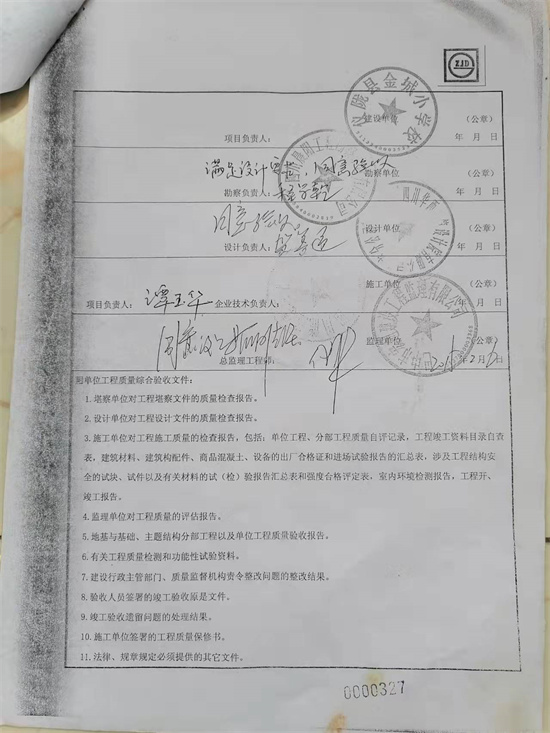 ZJD
仪陇县金城小学校
建设单位 （公章）
项目负责人： 年 月 日
满足设计要求，同意验收
勘察单位 （公章）
勘察负责人： 年 月 日
同意验收
设计单位 （公章）
设计负责人： 年 月 日
施工单位 （公章）
项目负责人：谭玉华 企业技术负责人： 年 月 日
监理单位 （公章）
总监理工程师： 年 月 日
同单位工程质量综合验收文件：
1.堪察单位对工程堪察文件的质量检查报告。
2.设计单位对工程设计文件的质量检查报告。
3.施工单位对工程施工质量的检查报告，包括：单位工程、分部工程质量自评记录，工程竣工资料目录自查
表，建筑材料、建筑构配件、商品混凝土、设备的出厂合格证和进场试验报告的汇总表，涉及工程结构安
全的试块、试件以及有关材料的试（检）验报告汇总表和强度合格评定表，室内环境检测报告，工程开、
竣工报告。
4.监理单位对工程质量的评估报告。
5.地基与基础、主题结构分部工程以及单位工程质量验收报告。
6.有关工程质量检测和功能性试验资料。
7.建设行政主管部门、质量监督机构责令整改问题的整改结果。
8.验收人员签署的竣工验收原是文件。
9.竣工验收遗留问题的处理结果。
10.施工单位签署的工程质量保修书。
11.法律、规章规定必须提供的其它文件。
0000327